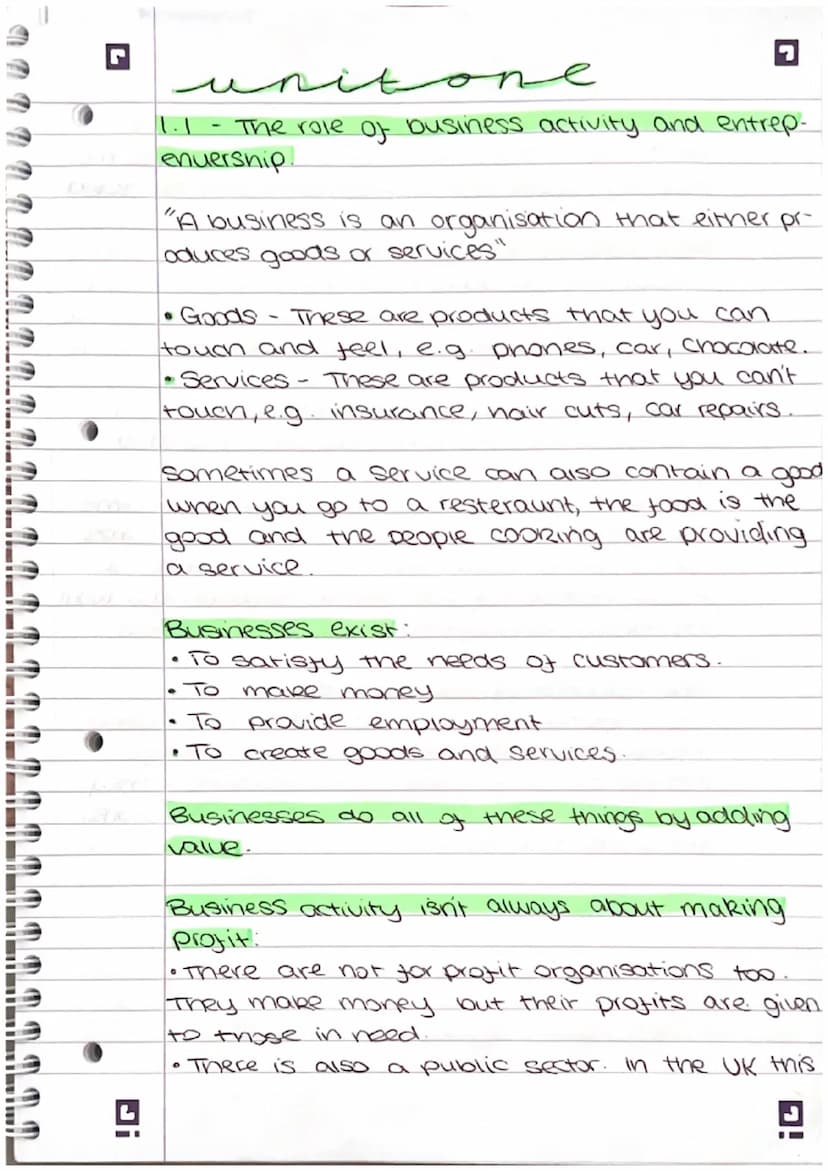 unit one
1.1 - The role of business activity and entrep-
enuership.
"A business is an organisation that either pr-
oduces goods or services"
• Goods - These are products that you can
touch and feel, e.g. phones, car, chocolate.
• Services - These are products that you can't
touch, e.g. insurance, hair cuts, car repairs.
Sometimes a service can also contain a good
when you go to a resteraunt, the food is the
good and the people cooking are providing
a service.
Businesses exist:
• To satisfy the needs of customers.
• To make money
• To provide employment
• To create goods and services.
Businesses do all of these things by adding
value.
Business activity isn't always about making
profit:
• There are not for profit organisations too.
They make money but their profits are given
to those in need.
• There is also a public sector. In the UK this